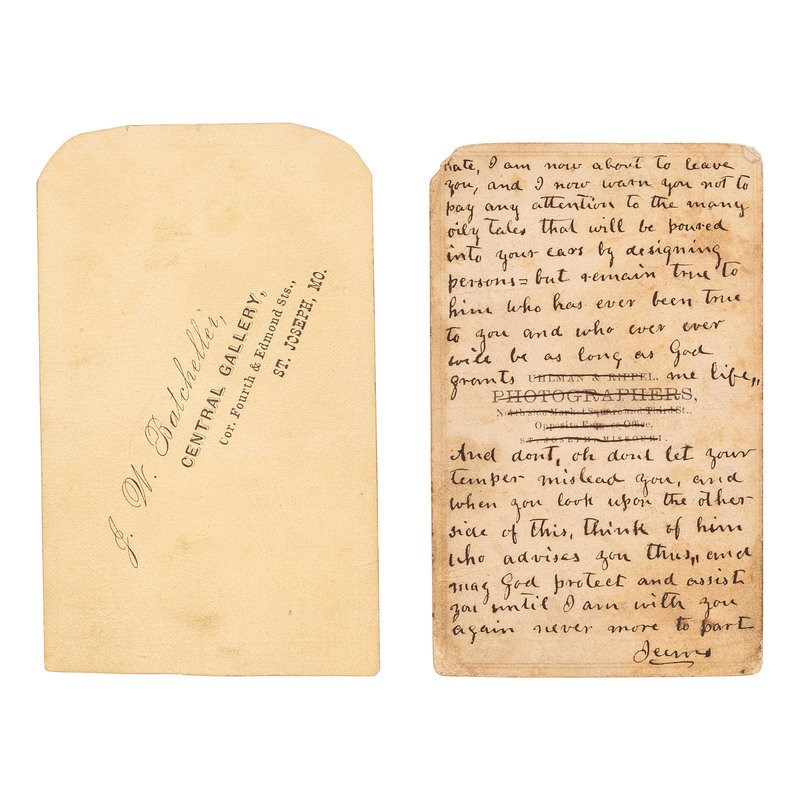 J. W. Batcheller,
CENTRAL GALLERY,
Cor. Fourth & Edmond Sts.,
ST. JOSEPH, MO.
Kate, I am now about to leave
you, and I now warn you not to
pay any attention to the many
oily tales that will be poured
into your ears by designing
persons = but remain true to
him who has ever been true
to you and who ever ever
will be as long as God
grants me life,,
UHLMAN & RIPPEL.
PHOTOGRAPHERS,
North side Market Square and Third St.,
Opposite Express Office,
ST. JOSEPH, MISSOURI.
And dont, oh dont let your
temper mislead you, and
when you look upon the other
side of this, think of him
who advises you thus,, and
may God protect and assist
you until I am with you
again never more to part